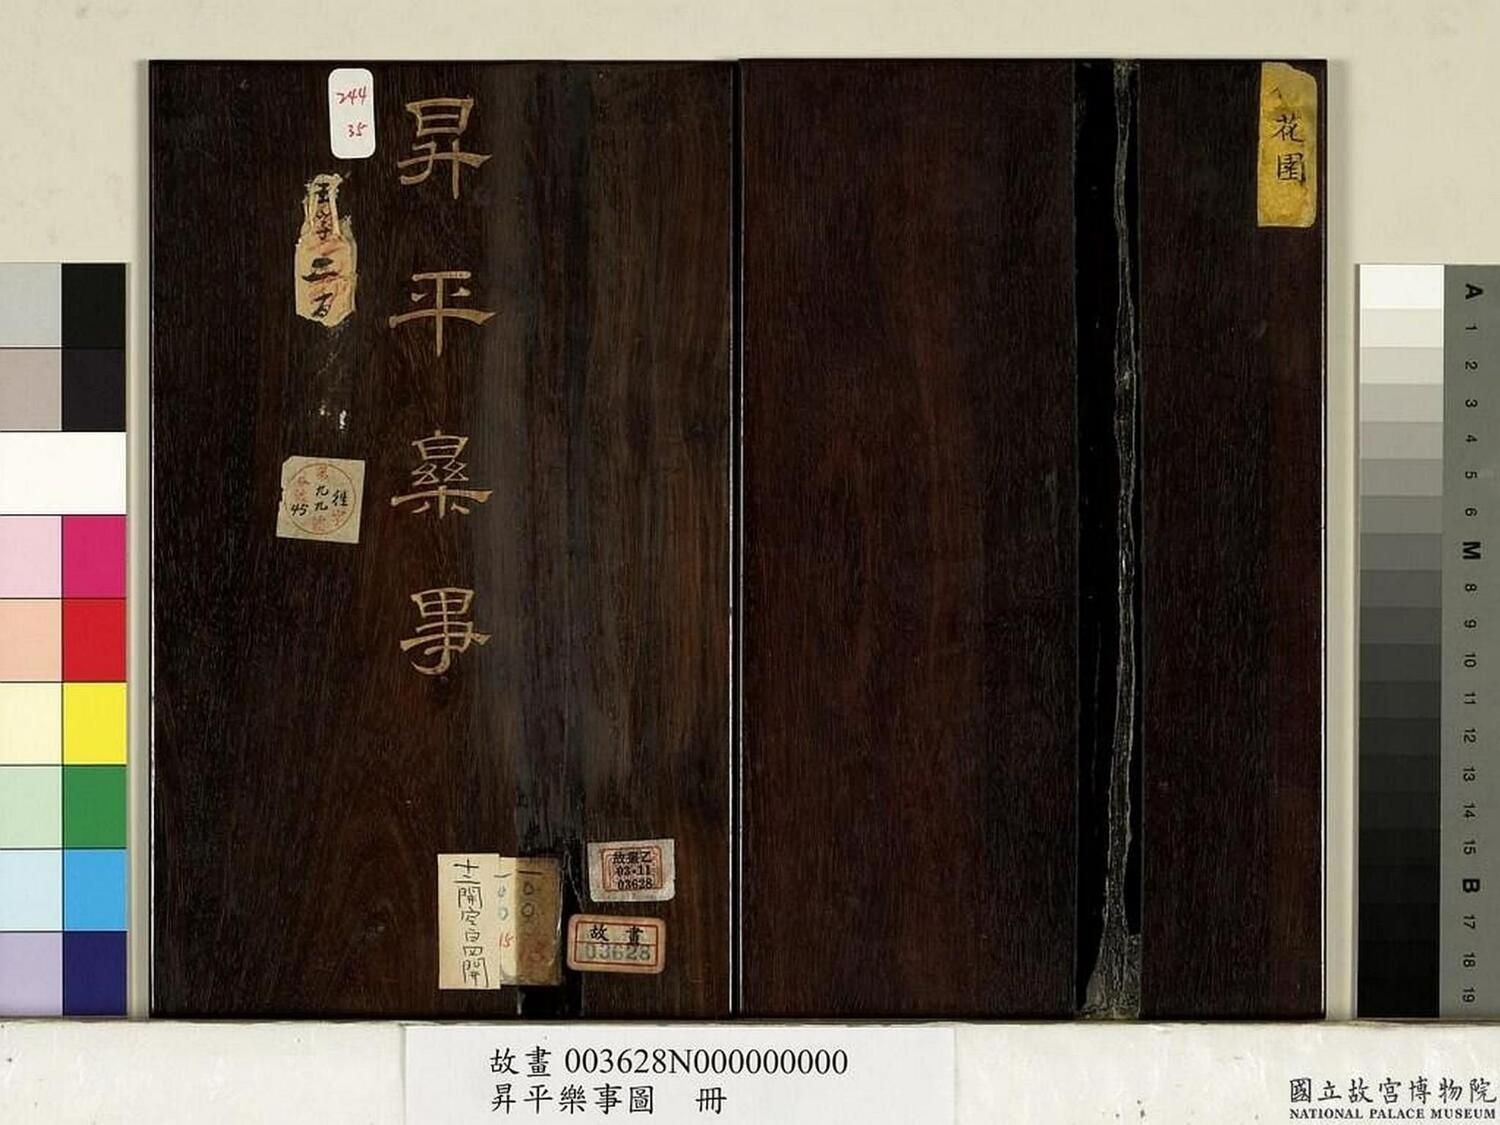 昇平樂事
花園
244
35
二百
第九九號
往字
45
十二開空白四開
一00
15
一00
故畫乙
03-11
03628
故畫
03628
故畫 003628N000000000
昇平樂事圖 冊
國立故宮博物院
NATIONAL PALACE MUSEUM
A
1
2
3
4
5
6
M
8
9
10
11
12
13
14
15
B
17
18
19